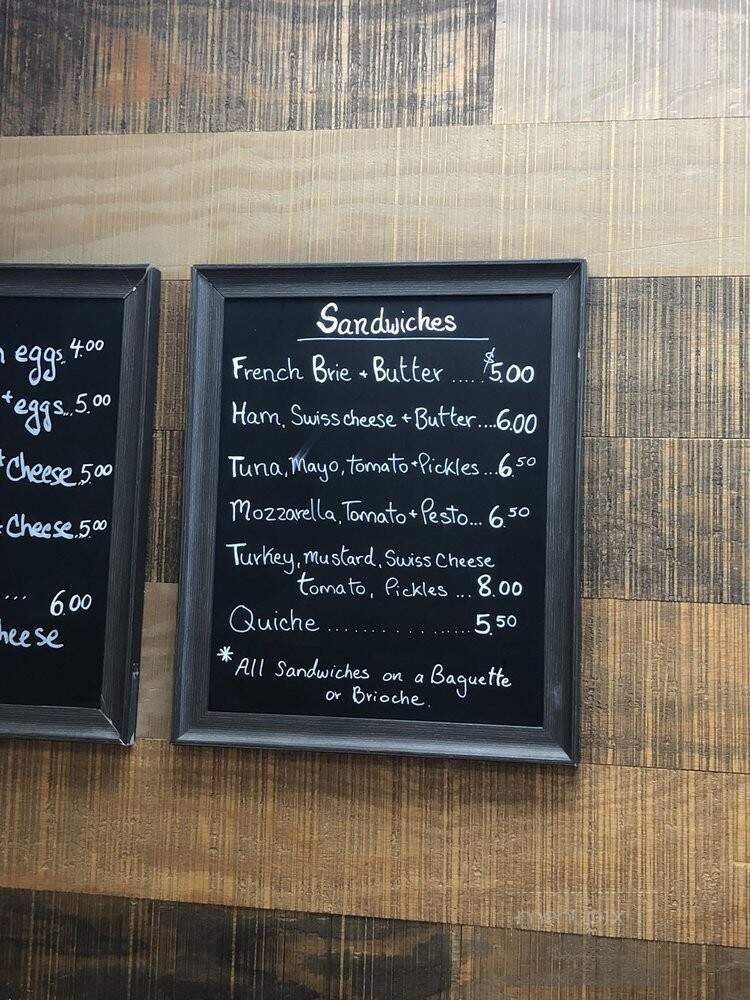 eggs 4.00
+ eggs... 5.00
+ Cheese. 5.00
Cheese. 5.00
... 6.00
heese
Sandwiches
French Brie + Butter ..... $5.00
Ham, Swiss cheese + Butter...6.00
Tuna, Mayo, tomato + Pickles ...6.50
Mozzarella, Tomato + Pesto... 6.50
Turkey, mustard, Swiss Cheese
tomato, Pickles ... 8.00
Quiche .................. 5.50
* All Sandwiches on a Baguette
or Brioche.